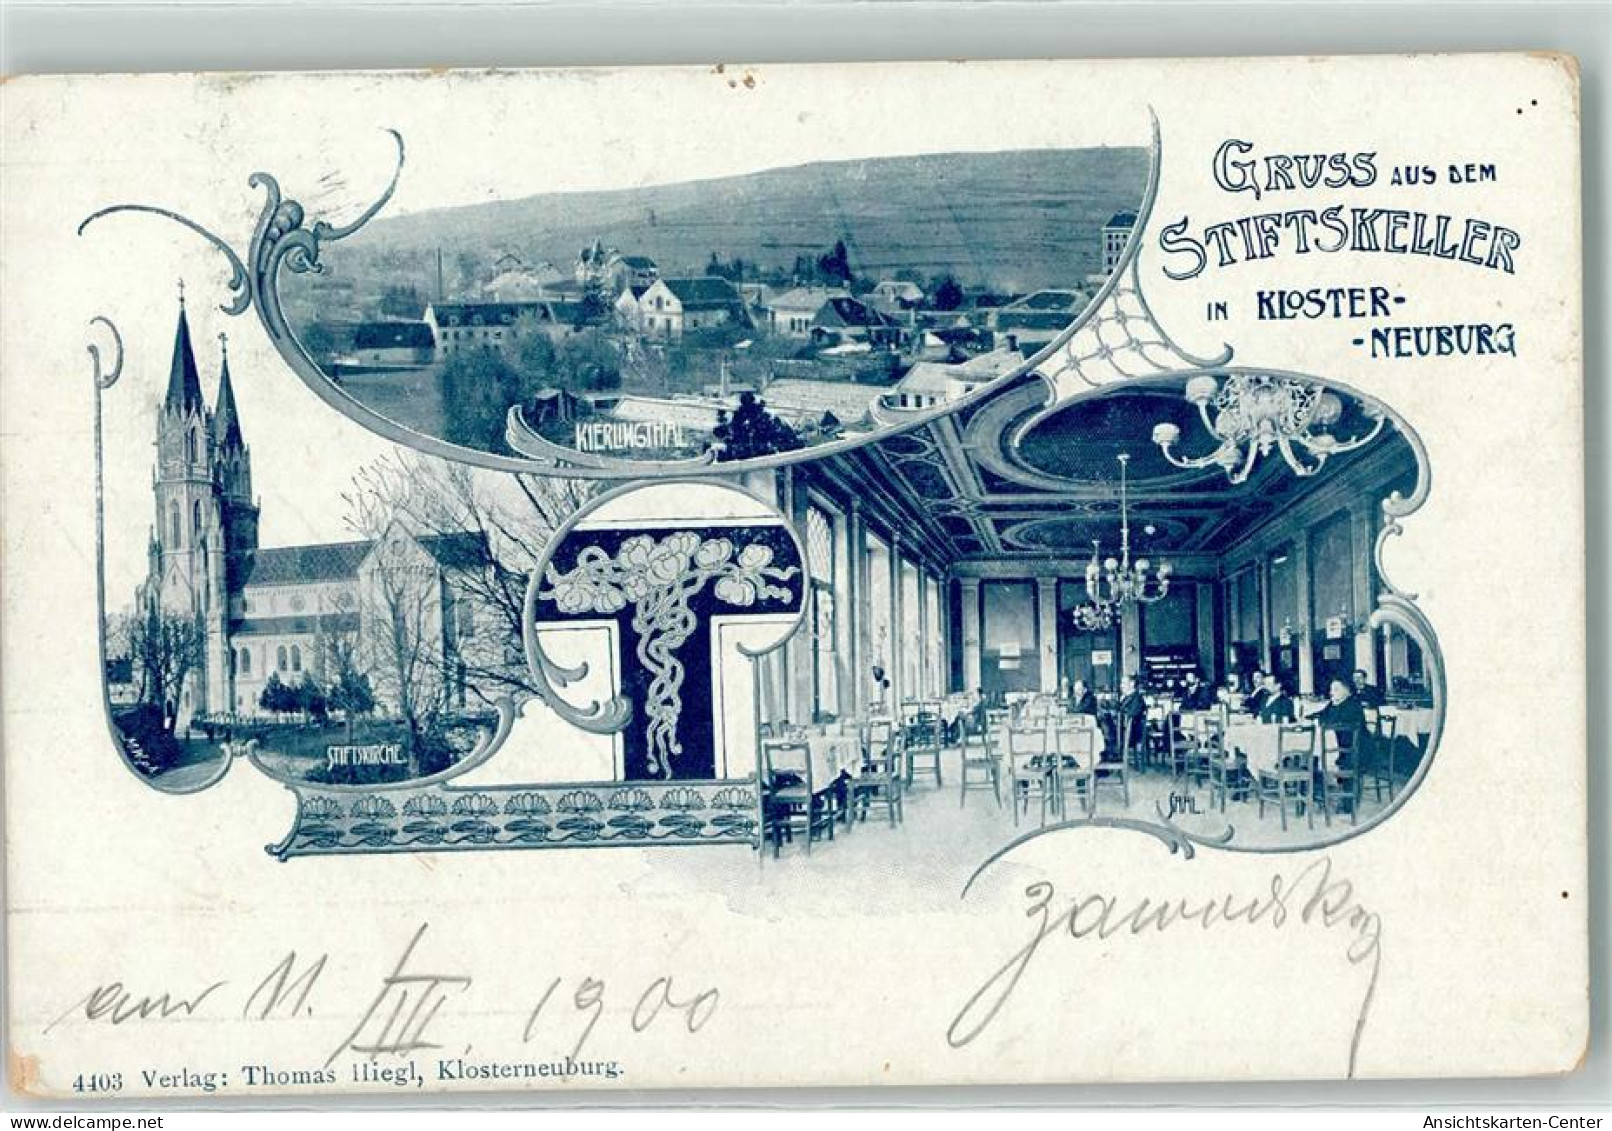 GRUSS AUS DEM
STIFTSKELLER
IN KLOSTER-
-NEUBURG
KIERLINGTHAL
STIFTSKIRCHE
SAAL
Zawodsky
am 11. III. 1900
4403 Verlag: Thomas Hiegl, Klosterneuburg.
Ansichtskarten-Center